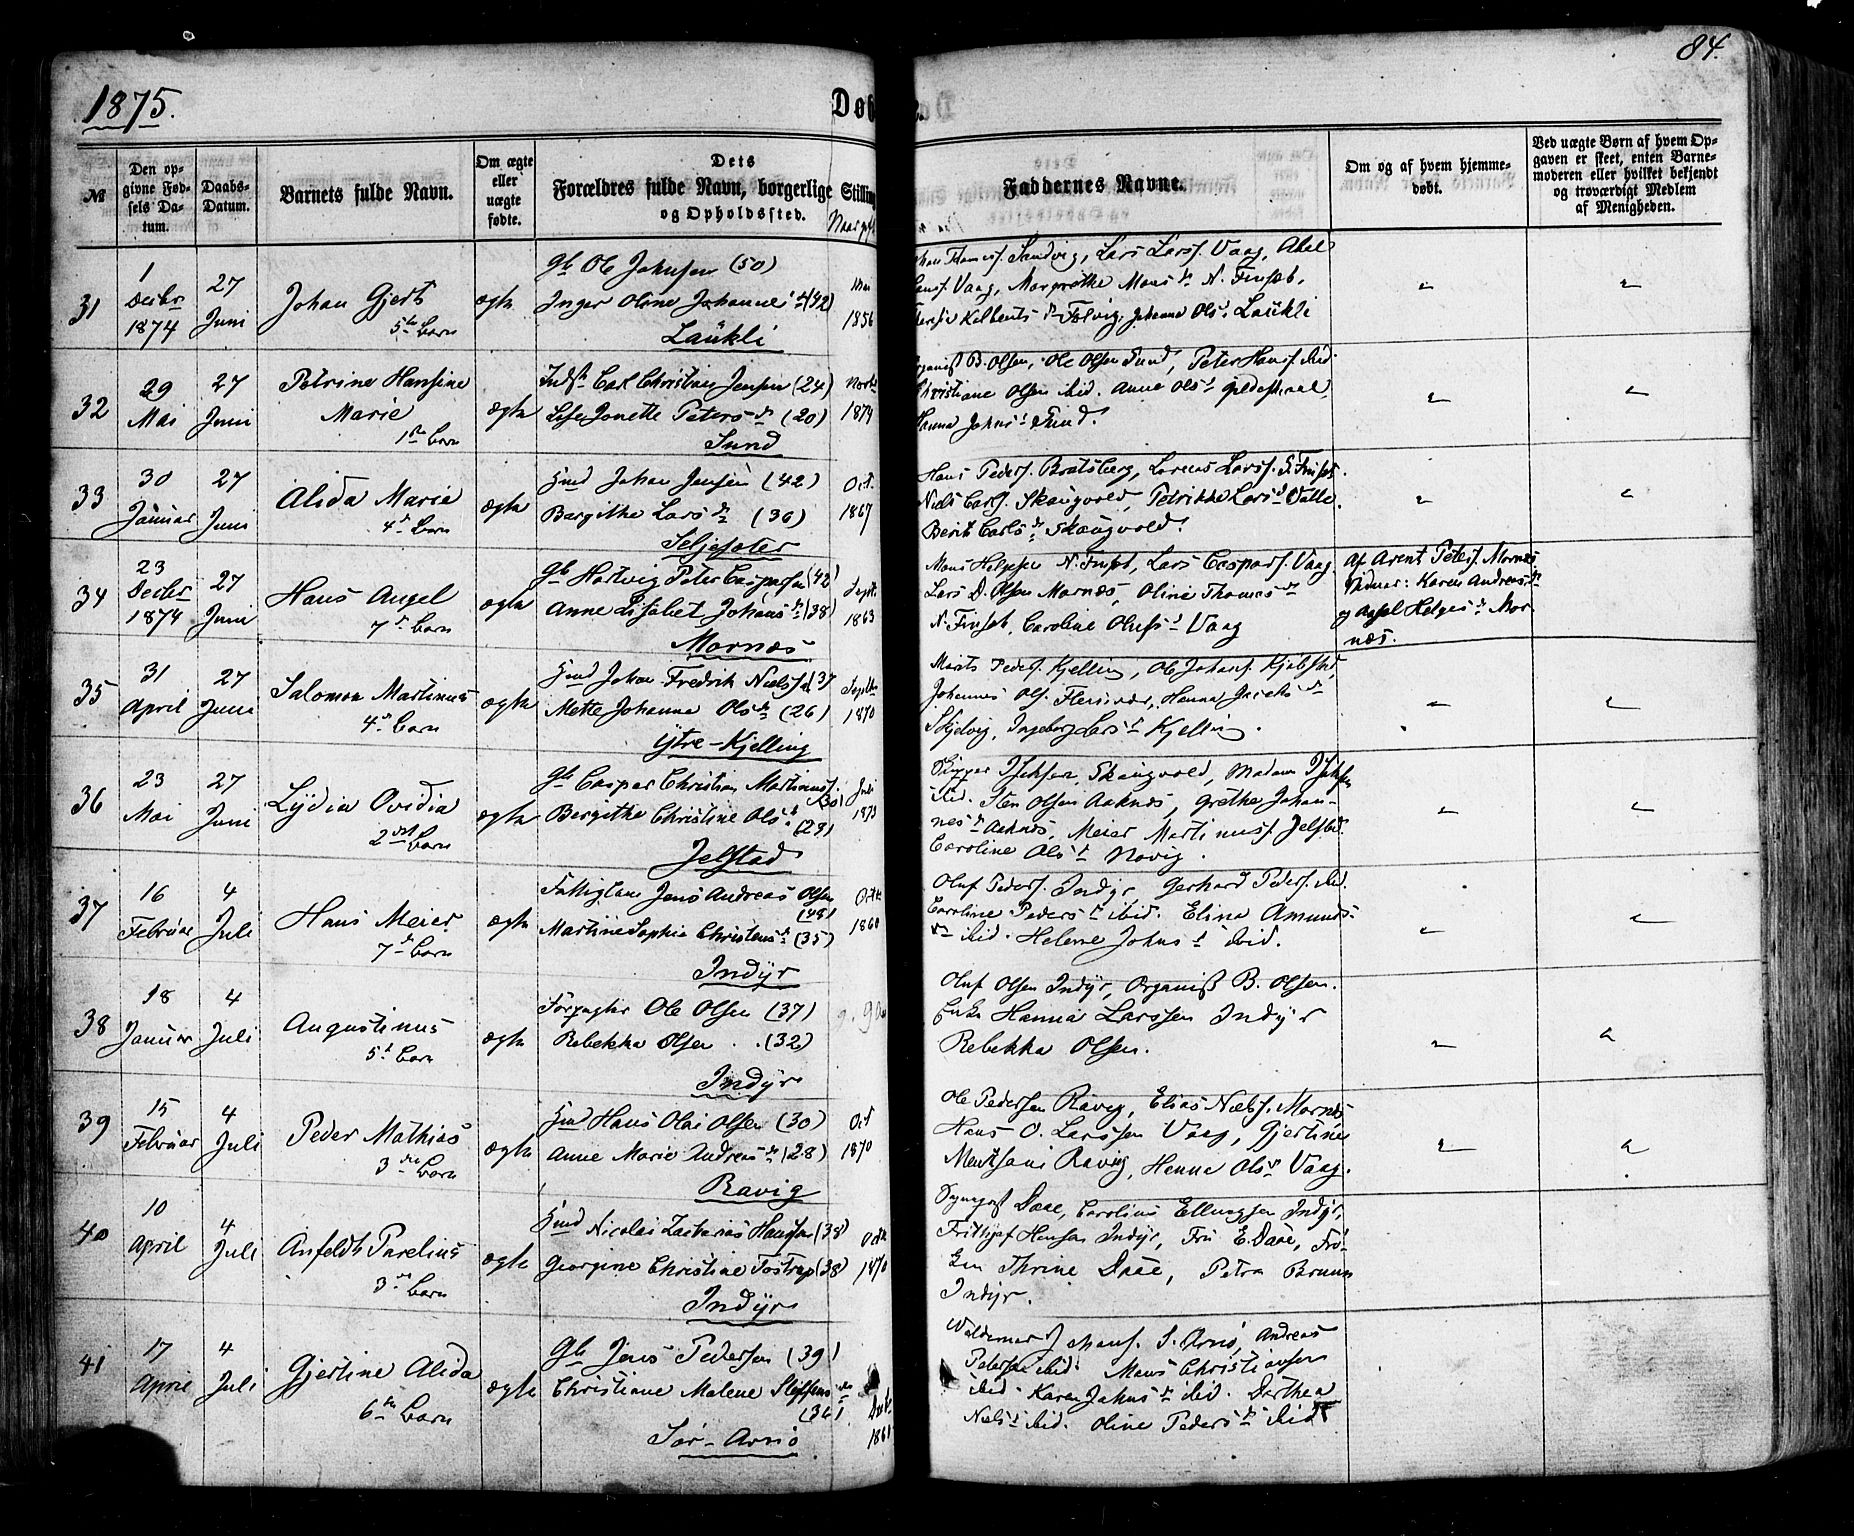 1875.
84.
Døb
№
Den op-
givne Fød-
sels Da-
tum.
Daabs-
Datum.
Barnets fulde Navn.
Om ægte
eller
uægte
fødte.
Dets
Forældres fulde Navn, borgerlige Stilling
og Opholdssted.
Faddernes Navne.
Om og af hvem hjemme-
døbt.
Ved uægte Børn af hvem Op-
gaven er skeet, enten Barne-
moderen eller hvilket bekjendt
og troværdigt Medlem
af Menigheden.
31
1
Decbr
1874
27
Juni
Johan Gjert
5te Barn
ægte
Gb Ole Johnsen (50)
Inger Oline Johannesd (42)
Laukli
1856
Thomess. Sandvig, Lars Larss. Vaag, Abel
Vaag, Margrethe Monsdr N. Finset,
Johanna Olsd Laukli
32
29
Mai
27
Juni
Petrine Hansine
Marie
1ste Barn
ægte
Inds Carl Christian Jensen (24)
Lise Jonette Petersdr (20)
Sund
1874
B. Olsen, Ole Olsen Sund, Peter Hanss. ibid.
Christiane Olsen ibid. Anna Olsd
Hanna Johnsd Sund.
33
30
Januar
27
Juni
Alida Marie
4de Barn
ægte
Gmd Johan Jensen (42)
Bergithe Larsdr (36)
Seljesæter
Oct.
1867
Hans Peders. Bratsberg, Lorens Larss.
Niels Carls. Skaugvold, Petrikke Larsd Valle
Berit Carlsdr Skaugvold.
34
23
Decbr
1874
27
Juni
Hans Angel
7de Barn
ægte
Gb Hartvig Peter Caspersen (42)
Anne Lisabet Johansd (38)
Mornæs
Septr
1863
Mons N. Finset, Lars Caspars. Vaag
Lars D. Olsen Mornæs, Oline Thomasdr
N. Finset, Caroline Olufsd Vaag
Af Arent Peters. Mornæs
Vidner: Karen Andreasdr
og Helgesd Mor-
næs.
35
31
April
27
Juni
Salomon Martinus
4de Barn
ægte
Gmd Johan Fredrik Nielssen (37
Mette Johanna Olsdr (26)
ytre-Kjelling
Septbr
1870
Morits Peders. Kjelling, Ole Johans. Kjelstad,
Johannes Ols. Hanna
Skjelvig, Ingeborg Larsd Kjelling.
36
23
Mai
27
Juni
Lydia Ovidia
2det Barn
ægte
Gb Casper Christian Martinuss.
(30)
Bergithe Christine Olsd
(29)
Jelstad
Juli
1873
Skipper Skaugvold, Madam
ibid. Sten Olsen Aaknæs, Grethe Johan-
nesdr Aaknæs, Meier Martinuss. Jelstad.
Caroline Olsd Novig.
37
16
Februar
4
Juli
Hans Meier
7de Barn
ægte
Fattiglem Jens Andreas Olsen
(48)
Martine Sophie Christensd (35)
Indyr
Octbr
1860
Oluf Peders. Indyr Gerhard Peders. ibid.
Caroline Pedersd ibid. Elina Amunds-
dr ibid. Helene Johnsd ibid.
38
18
Januar
4
Juli
Augustinus
5te Barn
ægte
Forpagter Ole Olsen (37)
Rebekka Olsen (32)
Indyr
Oluf Olsen Indyr, Organist B. Olsen.
Enke Hanna Larssen Indyr
Rebekka Olsen.
39
15
Februar
4
Juli
Peder Mathias
3die Barn
ægte
Gmd Hans Olai Olsen (30)
Anne Marie Andreasdr (28)
Ravig
Oct
1870
Ole Pedersen Ravig, Elias Niels. Mornæs
Hans O. Larssen Vaag, Gjertine
Ravig, Hanna Olsd Vaag.
40
10
April
4
Juli
Anfeldt Parelius
3die Barn
ægte
Gmd Nicolai Zacharias Hanssen (38)
Georgine Christine Tostrup (38)
Indyr
Octbr
1870
Sogneprst Daae, Carolius Ellingsen Indyr,
Frithjof Hansen Indyr, Fru E. Daae, Frø-
ken Thrine Daae, Petra Bruun
Indyr.
41
17
April
4
Juli
Gjertine Alida
6te Barn
ægte
Gb Jens Pedersen (39)
Christiane Malene Steffensdr
(36)
Sør-Arnø
1861
Waldemar Johans. S. Arnø, Andreas
Petersen ibid. Mons Christiansen
ibid. Karen Johnsdr ibid. Dorthea
Nielsd ibid. Oline Pedersdr ibid